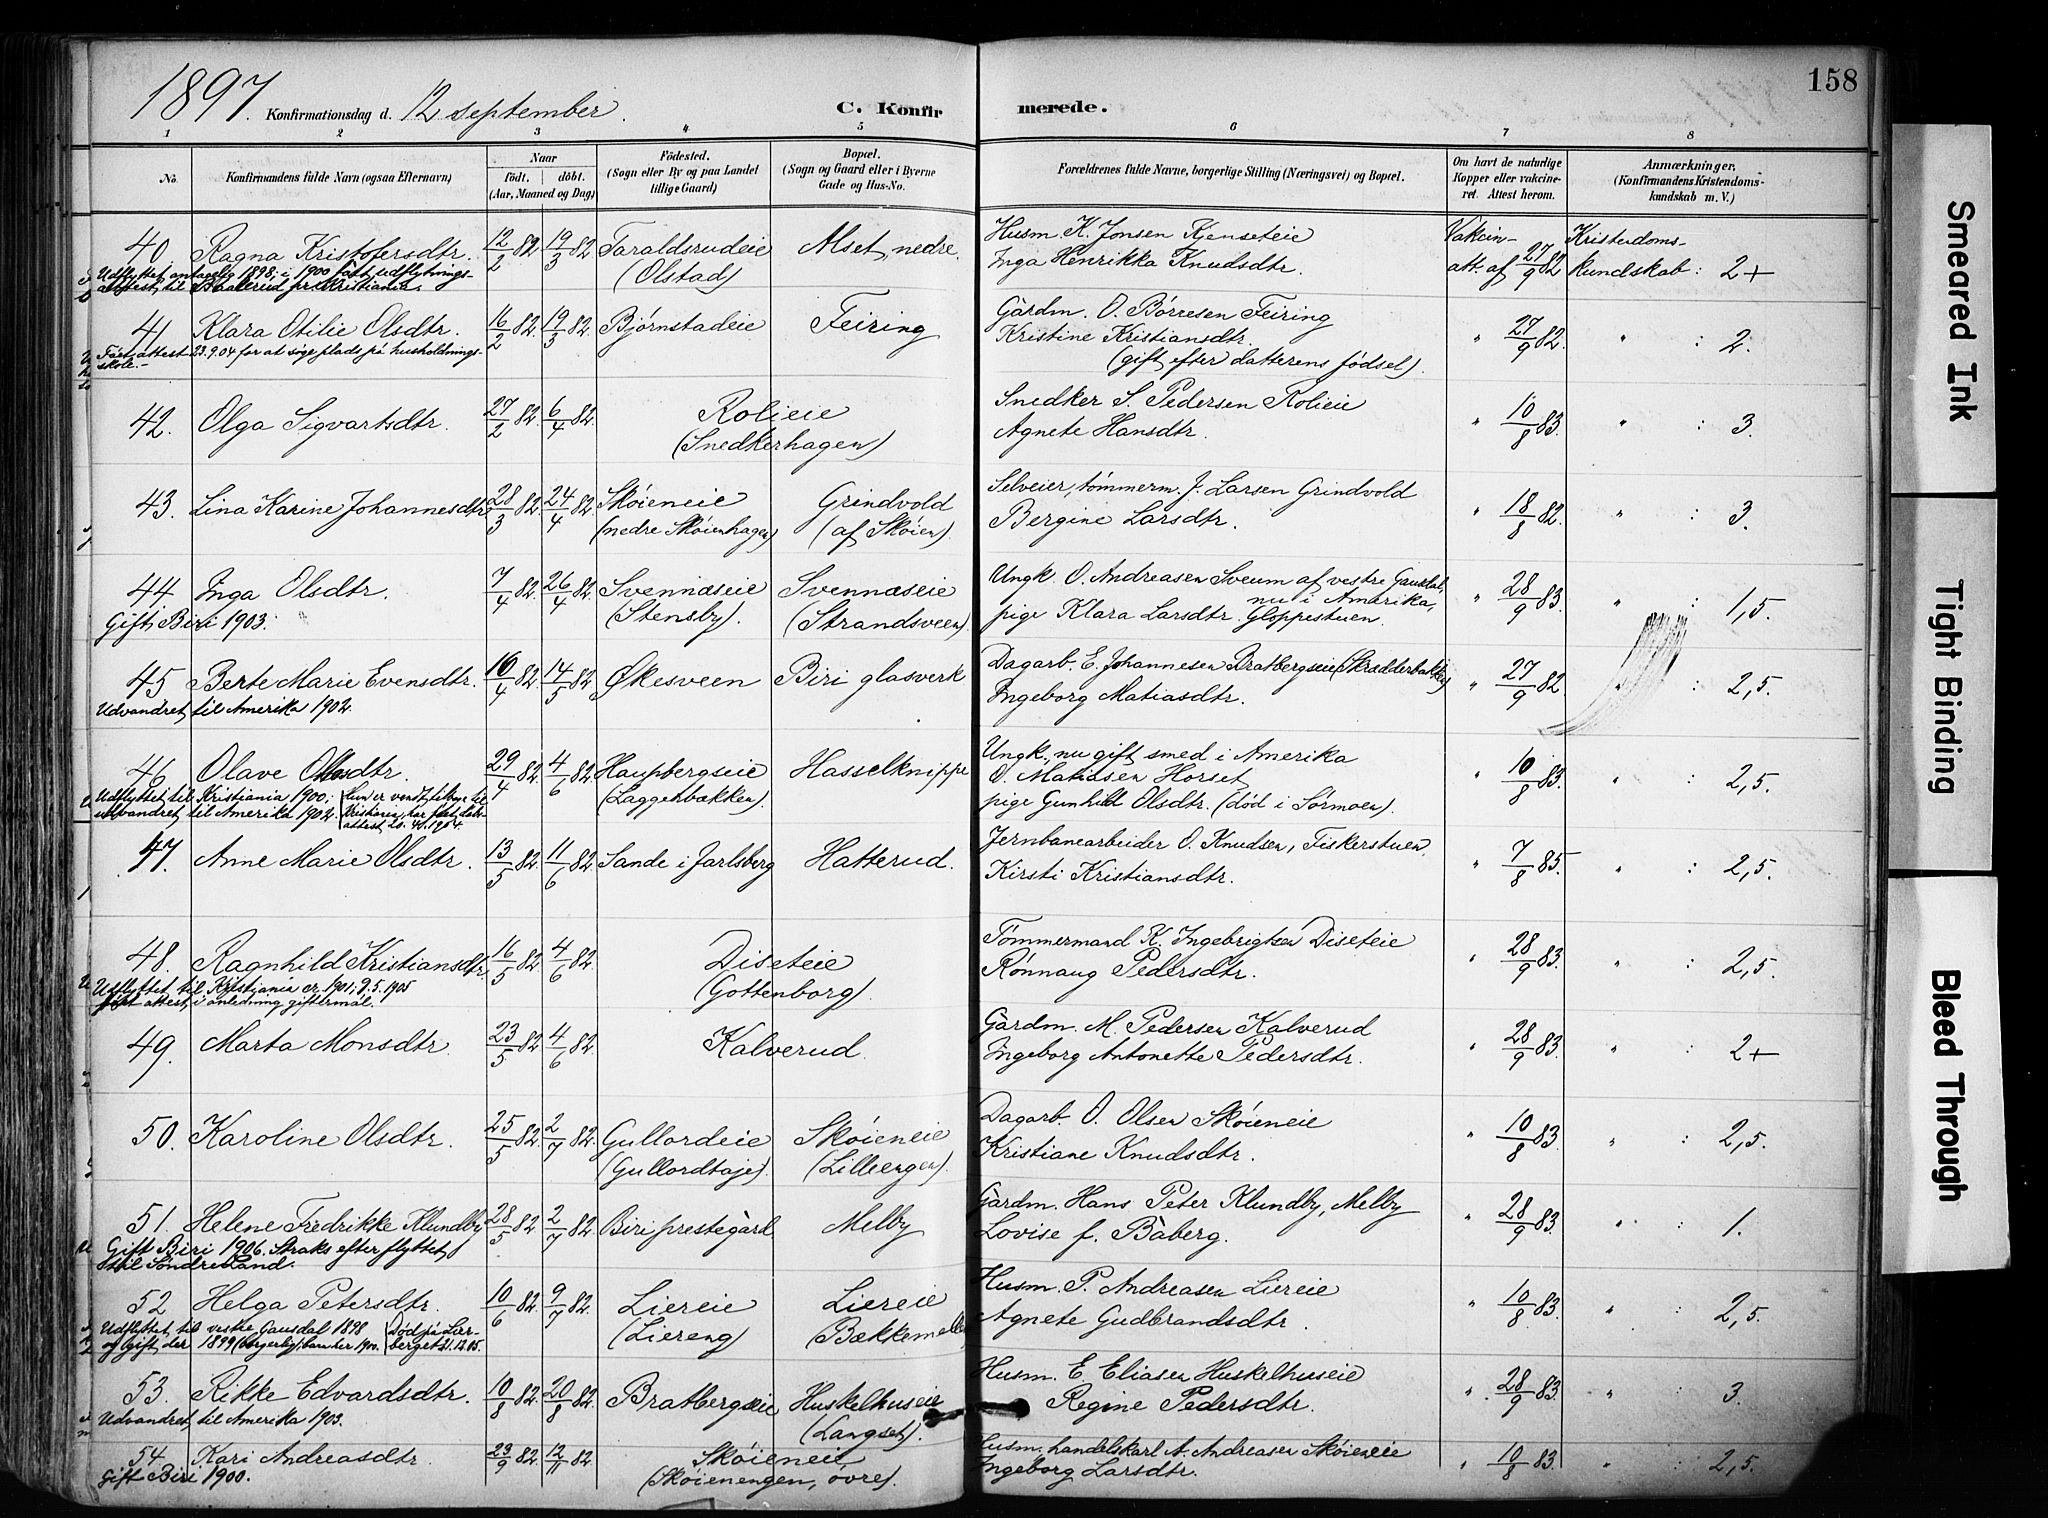 1897. Konfirmationsdag d. 12 september. C. Konfirmerede. 158
1 2 3 4 5 6 7 8
No. Konfirmandens fulde Navn (ogsaa Efternavn) Naar födt. döbt. (Aar, Maaned og Dag) Födested. (Sogn eller By og paa Landet tillige Gaard) Bopæl. (Sogn og Gaard eller i Byerne Gade og Hus-No. Forældrenes fulde Navne, borgerlige Stilling (Næringsvei) og Bopæl. Om havt de naturlige Kopper eller vakcineret. Attest herom. Anmærkninger. (Konfirmandens Kristendomskundskab m. V.)
40. Ragna Kristofersdtr. 12/2 82 19/3 82 Taraldsrudeie (Olstad) Alset, nedre. Husm. K. Jonsen Kjenseteie Inga Henrikka Knudsdtr. Vakcin-att. af 27/9 82 Kristendoms-kundskab: 2+
Udflyttet antagelig 1898; i 1900 fått udflytnings-
attest til Baalerud pr. Kristiania.
41. Klara Otilie Olsdtr. 16/2 82. 19/3 82. Bjørnstadeie Feiring Gårdm. O. Børresen Feiring Kristine Kristiansdtr. (gift efter datterens fødsel). " 27/9 82. " : 2.
Fået attest 23.9.04 for at søge plads på husholdnings-
skole.-
42. Olga Sigvartsdtr. 27/2 82. 6/4 82. Rolieie (Snedkerhagen) Snedker S. Pedersen Rolieie Agnete Hansdtr. " 10/8 83. " : 3.
43. Lina Karine Johannesdtr. 28/3 82. 24/4 82. Skøieneie (nedre Skøienhagen) Grindvold (af Skøien). Selveier, tømmerm. J. Larsen Grindvold Bergine Larsdtr. " 18/8 82. " : 3.
44. Inga Olsdtr. 7/4 82. 26/4 82. Svennæseie (Stensby). Svennæseie (Strandsveen). Ungk. O. Andreasen Sveum af vestre Gausdal, nu i Amerika, pige Klara Larsdtr. Gloppestuen. " 28/9 83. " : 1,5.
Gift, Biri 1903.
45. Berte Marie Evensdtr. 16/4 82. 14/5 82. Økesveen Biri glasverk Dagarb. E. Johannesen Bratbergseie (Skrædderbakken) Ingeborg Matiasdtr. " 27/9 82 " : 2,5.
Udvandret til Amerika 1902.
46. Olave Olsdtr. 29/4 82. 4/6 82. Haupbergseie (Laggerbækken). Hasselknippe Ungk., nu gift smed i Amerika O. Matiasen Horset, pige Gunhild Olsdtr. (død i Sørmoen). " 10/8 83. " : 2,5.
Udflyttet til Kristiania 1900;
udvandret til Amerika 1902.
47. Anne Marie Olsdtr. 13/5 82. 11/6 82. Sande i Jarlsberg Hatterud. Jernbanearbeider O. Knudsen, Fiskerstuen, Kirsti Kristiansdtr. " 7/8 85. " : 2,5.
48. Ragnhild Kristiansdtr. 16/5 82. 4/6 82. Diseteie (Gottenborg). Tømmermand K. Ingebrigtsen Diseteie Rønnaug Pedersdtr. " 28/9 83. " : 2,5.
Udflyttet til Kristiania cr. 1901; 9.5.1905
fået attest i anledning giftermål.
49. Marta Monsdtr. 23/5 82. 4/6 82. Kalverud. Gårdm. M. Pedersen Kalverud Ingeborg Antonette Pedersdtr. " 28/9 83. " : 2+
50. Karoline Olsdtr. 25/5 82. 2/7 82. Gullordeie (Gullordtaje). Skøieneie (Lilleengen). Dagarb. O. Olsen Skøieneie Kristiane Knudsdtr. " 10/8 83. " : 2,5.
51. Helene Fredrikke Klundby 28/5 82. 2/7 82. Biri prestegård. Melby Gårdm. Hans Peter Klundby, Melby Lovise f. Båberg. " 28/9 83. " : 1.
Gift Biri 1906. Straks efter flyttet
til Søndre Land.
52 Helga Petersdtr. 10/6 82. 9/7 82. Liereie (Liereng) Liereie Bækkemellem Husm. P. Andreasen Liereie Agnete Gudbrandsdtr. " 10/8 83. " : 2,5.
Udflyttet til vestre Gausdal 1898
og gift der 1899 Død på Lier-
berget 21.12.05.
53. Rikke Edvardsdtr. 10/8 82. 20/8 82. Bratbergseie Huskelhuseie (Langset). Husm. E. Eliasen Huskelhuseie Regine Pedersdtr. " 28/9 83. " : 3.
Udvandret til Amerika 1903.
54. Kari Andreasdtr. 23/9 82. 12/11 82. Skøieneie (Skøienengen, øvre). Husm. handelskarl A. Andreasen Skøieneie Ingeborg Larsdtr. " 10/8 83. " : 2,5.
Gift Biri 1900.
Smeared Ink
Tight Binding
Bleed Through